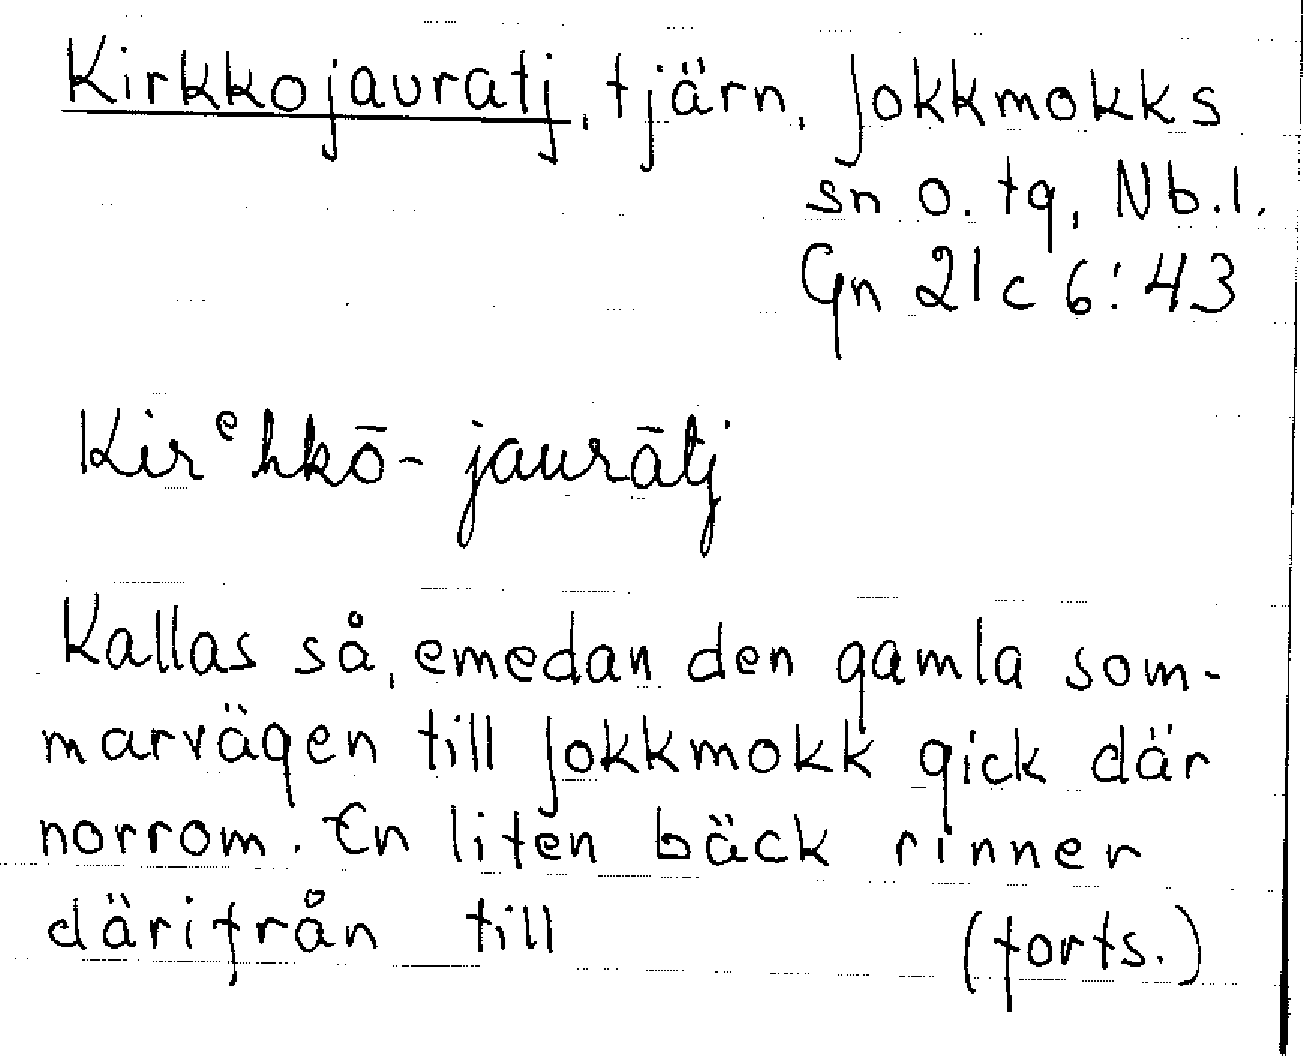 Kirkkojauratj, tjärn, Jokkmokks
sn o. tg, Nb.l.
Gn 21 c 6:43
Kirᵉhkō-jaurātj
Kallas så, emedan den gamla som-
marvägen till Jokkmokk gick där
norrom. En liten bäck rinner
därifrån till (forts.)